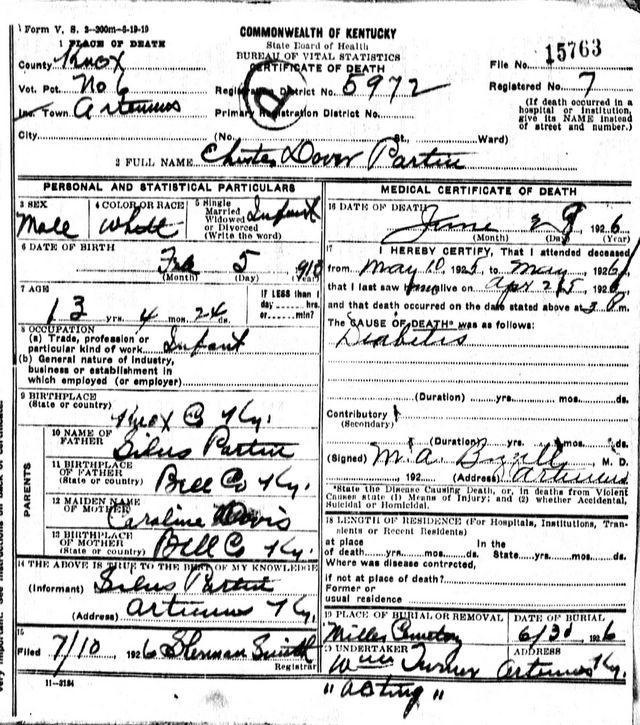 Form V. S. 2-200m-6-19-19
COMMONWEALTH OF KENTUCKY
State Board of Health
BUREAU OF VITAL STATISTICS
CERTIFICATE OF DEATH
1 PLACE OF DEATH
County Knox
Vot. Pct. No 6
Inc. Town Artemus
City
(No. St., Ward)
Registration District No. 5972
Primary Registration District No.
File No. 15763
Registered No. 7
(If death occurred in a hospital or institution, give its NAME instead of street and number.)
2 FULL NAME Chester Dover Partin
PERSONAL AND STATISTICAL PARTICULARS
3 SEX
Male
4 COLOR OR RACE
White
5 Single Married Widowed or Divorced (Write the word)
Infant
6 DATE OF BIRTH
5
(Month) (Day) (Year)
7 AGE
13 yrs. 4 mos. 24 ds.
IF LESS than 1 day hrs. or min?
8 OCCUPATION
(a) Trade, profession or particular kind of work Infant
(b) General nature of industry, business or establishment in which employed (or employer)
9 BIRTHPLACE
(State or country)
Knox Co Ky.
PARENTS
10 NAME OF FATHER
Silus Partin
11 BIRTHPLACE OF FATHER (State or country)
Bell Co Ky.
12 MAIDEN NAME OF MOTHER
Caroline Davis
13 BIRTHPLACE OF MOTHER (State or country)
Bell Co Ky.
14 THE ABOVE IS TRUE TO THE BEST OF MY KNOWLEDGE
(Informant) Silus Partin
(Address) Artemus Ky.
15
Filed 7/10 1926 Sherman Smith
Registrar
11-3184
MEDICAL CERTIFICATE OF DEATH
16 DATE OF DEATH
June 1926
(Month) (Day) (Year)
17 I HEREBY CERTIFY, That I attended deceased
from May 10 192 to May 192
that I last saw alive on Apr 25 192
and that death occurred on the date stated above at 3 P m.
The CAUSE OF DEATH* was as follows:
Diabetis
(Duration) yrs. mos. ds.
Contributory
(Secondary)
(Duration) yrs. mos. ds.
(Signed) M. A. M. D.
, 192 (Address) Artemus
*State the Disease Causing Death, or, in deaths from Violent Causes state (1) Means of Injury; and (2) whether Accidental, Suicidal or Homicidal.
18 LENGTH OF RESIDENCE (For Hospitals, Institutions, Transients or Recent Residents)
at place of death yrs. mos. ds. In the State yrs. mos. ds.
Where was disease contracted, if not at place of death?
Former or usual residence
19 PLACE OF BURIAL OR REMOVAL
Miller Cemetery
DATE OF BURIAL
6/30 1926
20 UNDERTAKER
Turner
ADDRESS
Artemus Ky.
"Acting"